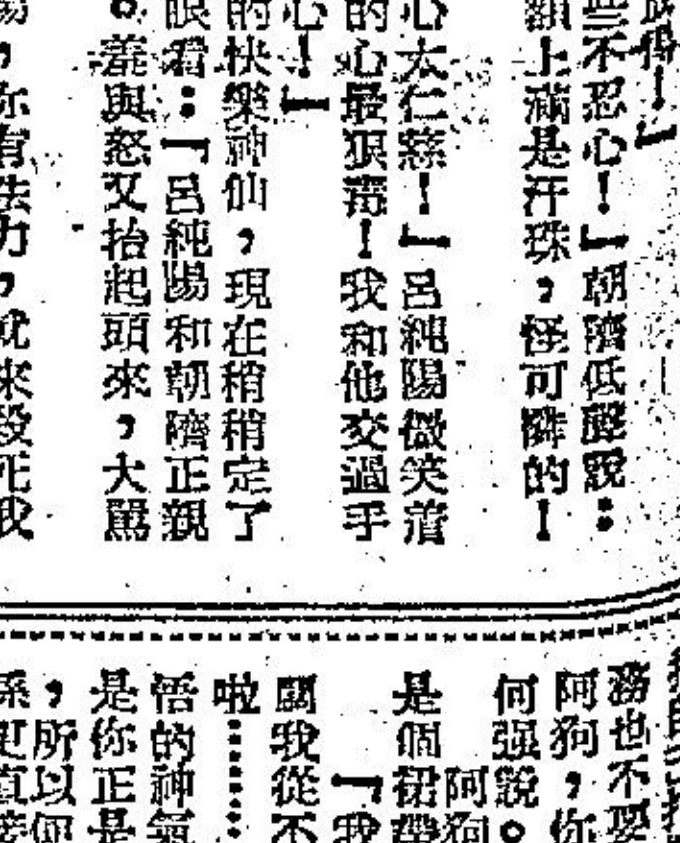 成得！」
些不忍心！」朝隮低聲說：
額上滿是汗珠，怪可憐的！
心太仁慈！」呂純陽微笑着
的心最狠毒！我和他交過手
心！」
的快樂神仙，現在稍稍定了
眼看：「呂純陽和朝隮正親
。羞與怒又抬起頭來，大罵
陽，你有法力，就來殺死我
務也不要
阿狗，你
何强說。
阿狗
是個裙帶
「我
關我從不
啦……
悟的神氣
是你正是
，所以便
係更直接